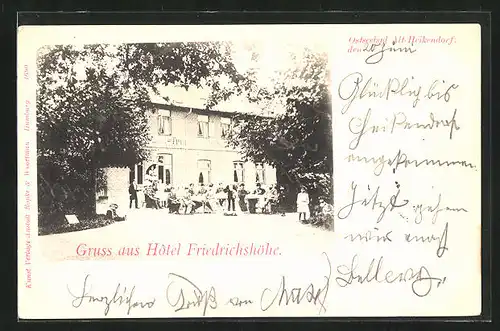 Ostseebad Alt-Heikendorf,
den 20 Juni
Glücklich bis
Heikendorf
angekommen.
Jetzt gehen
wir nach
Gruss aus Hôtel Friedrichshöhe.
Herzlichen Gruß von
Kunst. Verlags-Anstalt
Hamburg. 1899